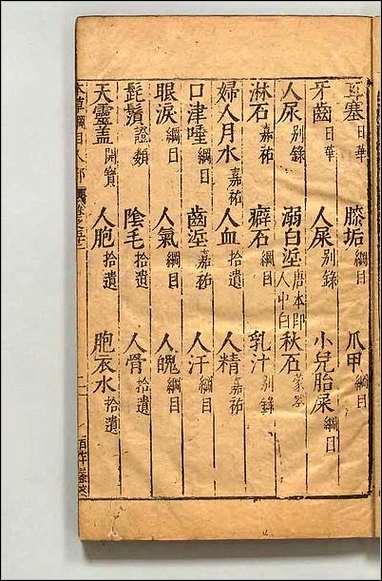 耳塞日華 膝垢綱目 爪甲綱目
牙齒日華 人屎別錄 小兒胎屎綱目
人尿別錄 溺白垽唐本即人中白 秋石蒙筌
淋石嘉祐 癖石綱目 乳汁別錄
婦人月水嘉祐 人血拾遺 人精嘉祐
口津唾綱目 齒垽嘉祐 人汗拾遺
眼淚綱目 人氣綱目 人魄綱目
髭鬚證類 陰毛拾遺 人骨拾遺
天靈蓋開寶 人胞拾遺 胞衣水拾遺
本草綱目人部